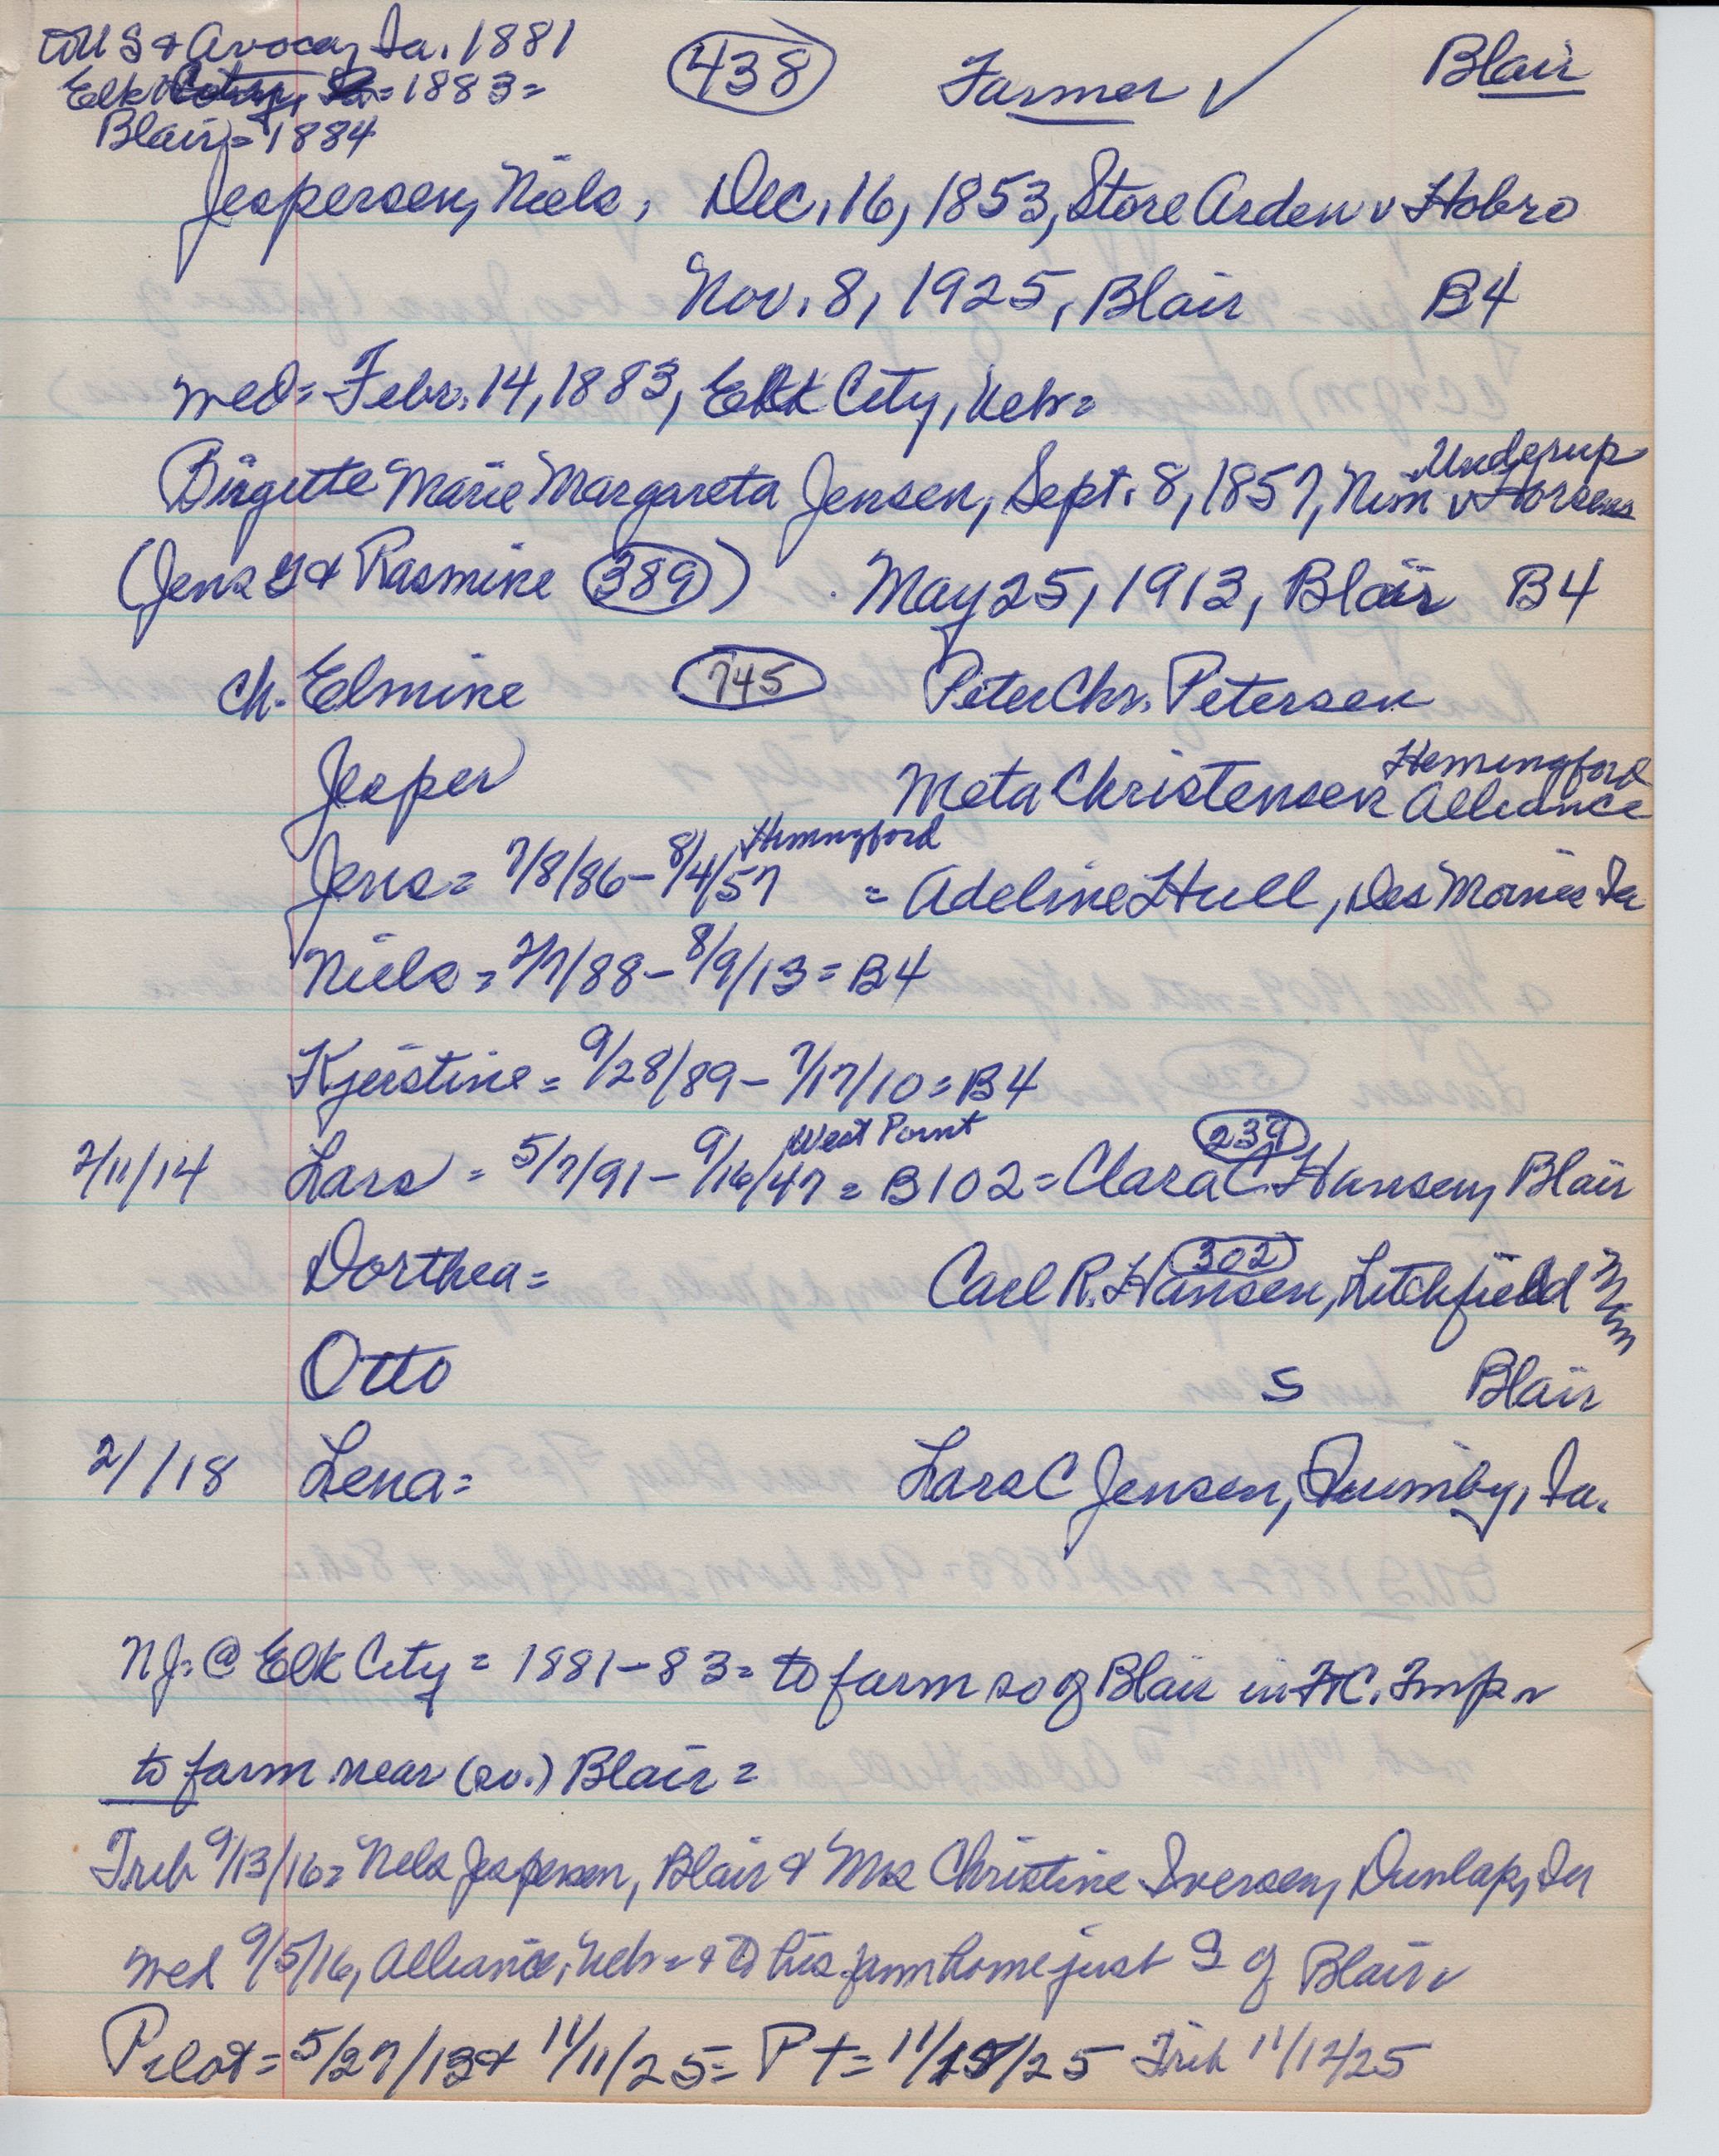 to US & Avoca, Ia. 1881
Elk City, Ia = 1883 =
Blair = 1884
438 Farmer ✓ Blair
Jespersen, Niels, Dec. 16, 1853, Store Arden v Hobro
Nov. 8, 1925, Blair B4
med = Febr. 14, 1883, Elk City, Nebr =
Underup
Birgitte Marie Margareta Jensen, Sept. 8, 1857, Nim v Horsens
(Jens G & Rasmine 389) May 25, 1913, Blair B4
ch. Elmine 745 Peter Chr. Petersen
Hemingford
Jesper Meta Christensen Alliance
Hemingford
Jens = 7/8/86 - 8/4/57 = Adeline Hull, Des Moines Ia
Niels = 2/7/88 - 8/9/13 = B4
Kjerstine = 9/28/89 - 7/17/10 = B4
West Point 239
2/11/14 Lars = 5/7/91 - 9/16/47 = B102 = Clara C. Hansen, Blair
302
Dorthea = Carl R. Hansen, Litchfield Minn
Otto S Blair
2/ /18 Lena = Lars C Jensen, Quimby, Ia.
NJ. @ Elk City = 1881-83 = to farm so of Blair in FtC. Tmp
to farm near (so.) Blair =
Trib 9/13/16 = Nels Jespersen, Blair & Mrs Christine Iversen, Dunlap, Ia
med 9/5/16, Alliance, Nebr = & to his farm home just S of Blair
Pilot = 5/27/13 & 11/11/25 = Pt = 11/ /25 Trib 11/12/25